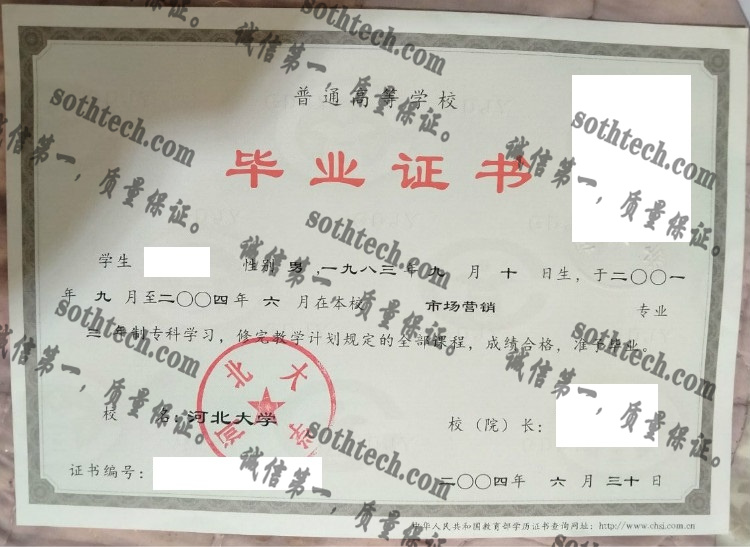 普通高等学校
毕业证书
学生 性别 男 ,一九八三 年 九 月 十 日生，于二〇〇一
年 九 月至二〇〇四年 六 月在本校 市场营销 专业
三 年制专科学习，修完教学计划规定的全部课程，成绩合格，准予毕业。
校 名：河北大学
校（院）长：
证书编号：
二〇〇四年 六 月 三十 日
中华人民共和国教育部学历证书查询网址：http://www.chsi.com.cn
河北大学
sothtech.com
诚信第一，质量保证。
sothtech.com
诚信第一，质量保证。
sothtech.com
诚信第一，质量保证。
sothtech.com
诚信第一，质量保证。
sothtech.com
诚信第一，质量保证。
sothtech.com
诚信第一，质量保证。
sothtech.com
诚信第一，质量保证。